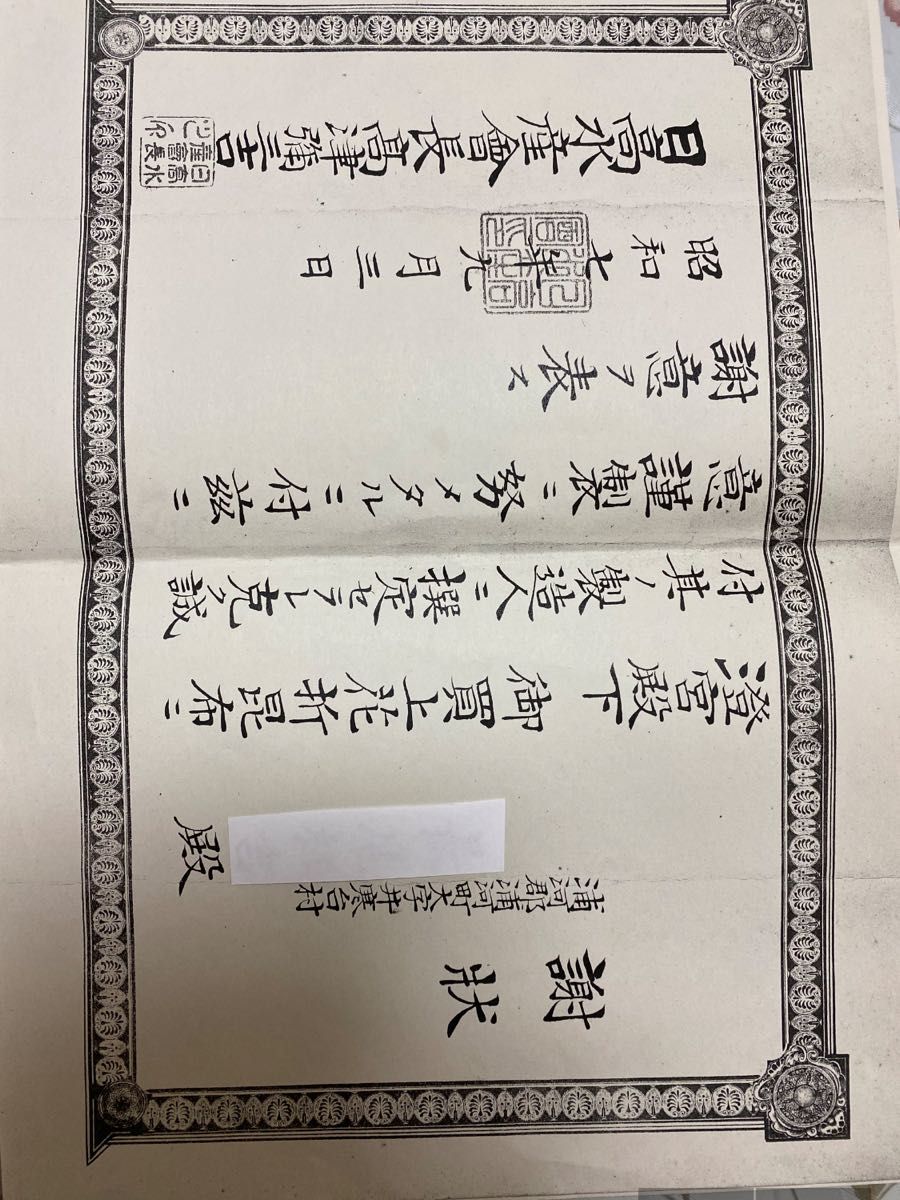 謝狀
浦河郡浦河町大字井寒台村
殿
澄宮殿下 御買上花折昆布ニ
付其ノ製造人ニ撰定セラレ克ク誠
意謹製ニ努メタルニ付茲ニ
謝意ヲ表ス
昭和七年九月三日
日高水産會長高津彌三吉
日高水
産會長
之印